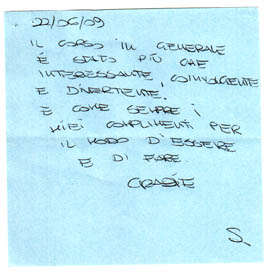 22/06/09
IL CORSO IN GENERALE
È STATO PIÙ CHE
INTERESSANTE, COINVOLGENTE
E DIVERTENTE.
E COME SEMPRE I
MIEI COMPLIMENTI PER
IL MODO D'ESSERE
E DI FARE.
GRAZIE
S.